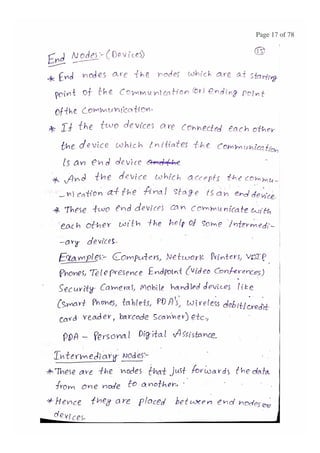 Page 17 of 78
15
End Nodes:- (Devices)
* End nodes are the nodes which are at starting
point of the Communication (or) ending point
of the Communication.
* If the two devices are connected each other
the device which initiates the communication
is an end device and the
* And the device which accepts the commu-
-nication at the final stage is an end device.
* These two end devices can communicate with
each other with the help of some intermedi-
-ary devices.
Examples:- Computers, Network Printers, VOIP
Phones, Telepresence Endpoint (Video Conferences)
Security Cameras, Mobile handled devices like
(Smart Phones, tablets, PDA's, Wireless debit/credit
card reader, barcode Scanner) etc.,
PDA - Personal Digital Assistance.
Intermediary Nodes:-
* These are the nodes that just forwards the data
from one node to another.
* Hence they are placed between end nodes or
devices.